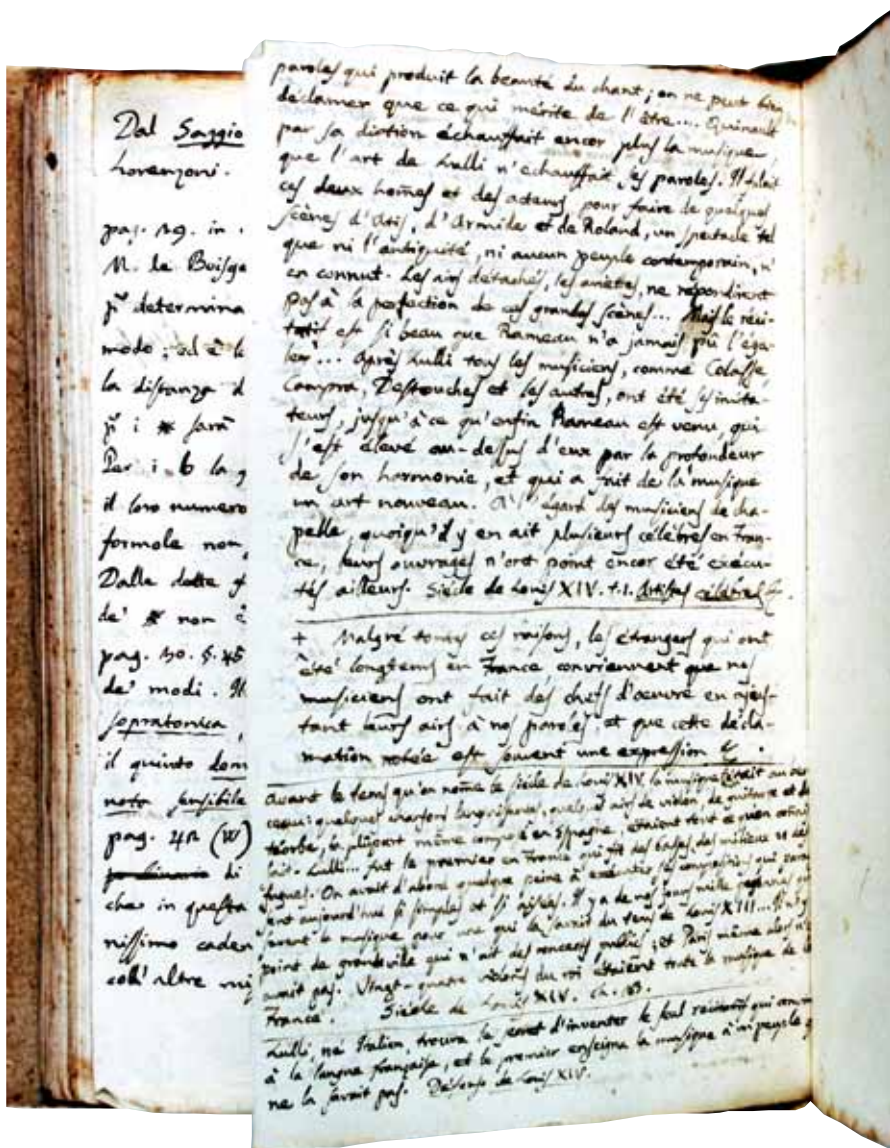 Dal Saggio
Lorenzoni.
pag. 19. in
M. le Boisge
determina
modo; ed è le
la distanza d
i # sarà
Per i b la g
il loro numero
formole non
Dalle dette f
de' # non è
pag. 30. §. 45
de' modi. Il
sopratonica,
il quinto dom
nota sensibile
pag. 42 (W)
di
che in questa
nissimo caden
coll' altre mi
paroles qui produit la beauté du chant; on ne peut bien
déclamer que ce qui mérite de l'être... Quinault
par sa diction échauffait encor plus la musique,
que l'art de Lulli n'echauffait ses paroles. Il fallait
ces deux hom̃es et des acteurs pour faire de quelques
scènes d'Atis, d'Armide et de Roland, un spectacle tel
que ni l'antiquité, ni aucun peuple contemporain, n'
en connut. Les airs détachés, les ariètes, ne répondirent
pas à la perfection de ces grandes scènes... Mais le réci-
tatif est si beau que Rameau n'a jamais pû l'éga-
ler... Après Lulli tous les musiciens, comme Colasse,
Campra, Destouches et les autres, ont été ses imita-
teurs, jusqu'à ce qu'enfin Rameau est venu, qui
s'est élevé au-dessus d'eux par la profondeur
de son harmonie, et qui a fait de la musique
un art nouveau. A l'égard des musiciens de cha-
pelle, quoiqu'il y en ait plusieurs célèbres en Fran-
ce, leurs ouvrages n'ont point encor été exécu-
tés ailleurs. Siècle de Louis XIV. t.1. Artistes célèbres
+ Malgré toutes ces raisons, les étrangers qui ont
été longtems en France conviennent que nos
musiciens ont fait des chefs d'oeuvre en ajus-
tant leurs airs à nos paroles, et que cette décla-
mation notée est souvent une expression
Avant le tems qu'on nom̃e le siècle de Louis XIV, la musique était au ber
ceau: quelques chansons languissantes, quelques airs de violon, de guitare et de
téorbe, la plûpart même composés en Espagne, étaient tout ce qu'on connais
sait. Lulli... fut le premier en France qui fit des basses, des milieux et des
fugues. On avait d'abord quelque peine à exécuter ses compositions qui parai
ent aujourd'hui si simples et si aisées. Il y a de nos jours mille personnes qui
savent la musique pour une qui la savait du tems de Louis XIII... Il n'y a
point de grande ville qui n'ait des concerts publics; et Paris même alors n'en
avait pas. Vingt-quatre violons du roi étaient toute la musique de la
France. Siècle de Louis XIV. ch.
Lulli, né Italien, trouva le secret d'inventer le seul récitatif qui conv
à la langue française, et le premier enseigna la musique à un peuple q
ne la savait pas. Défense de Louis XIV.